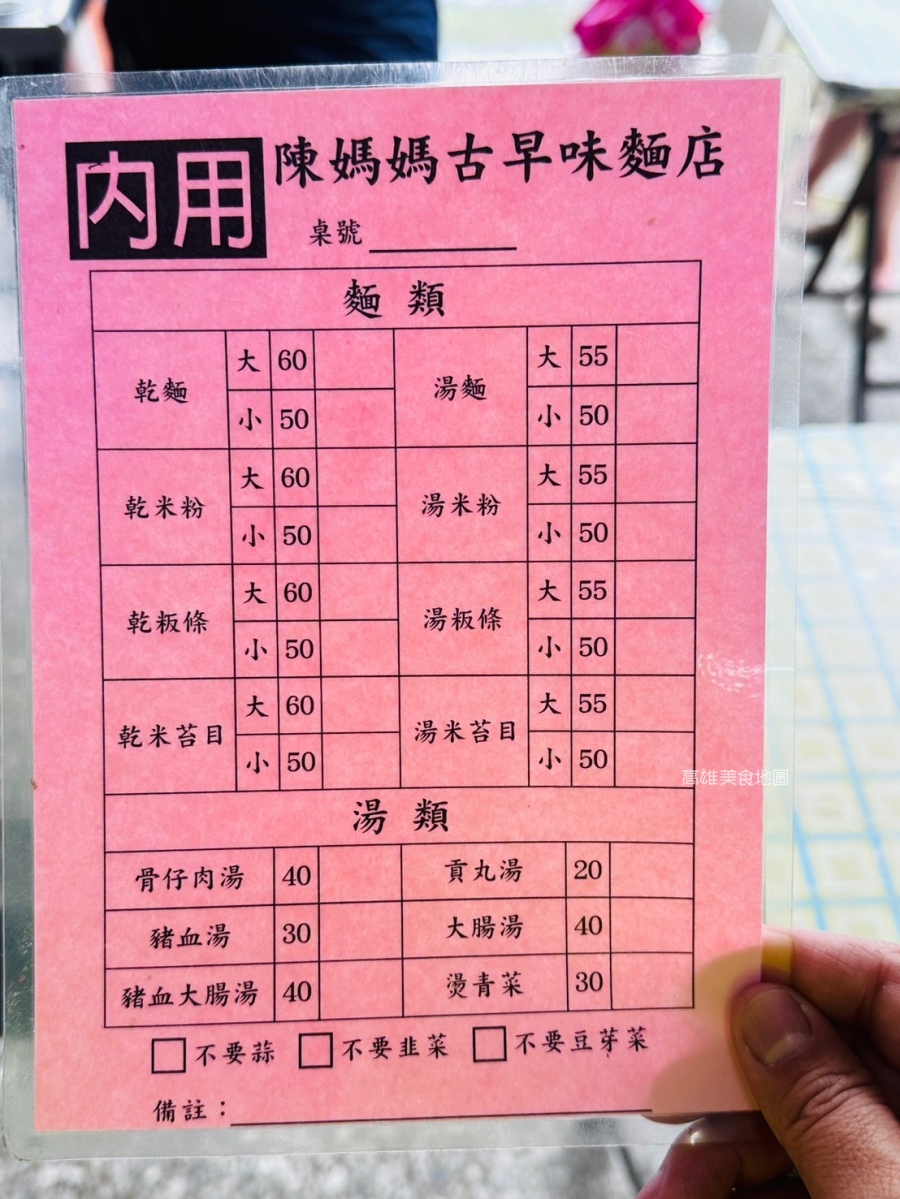 內用 陳媽媽古早味麵店
桌號
麵類
乾麵 大 60 湯麵 大 55
小 50 小 50
乾米粉 大 60 湯米粉 大 55
小 50 小 50
乾粄條 大 60 湯粄條 大 55
小 50 小 50
乾米苔目 大 60 湯米苔目 大 55
小 50 小 50
湯類
骨仔肉湯 40 貢丸湯 20
豬血湯 30 大腸湯 40
豬血大腸湯 40 燙青菜 30
不要蒜 不要韭菜 不要豆芽菜
備註：
高雄美食地圖